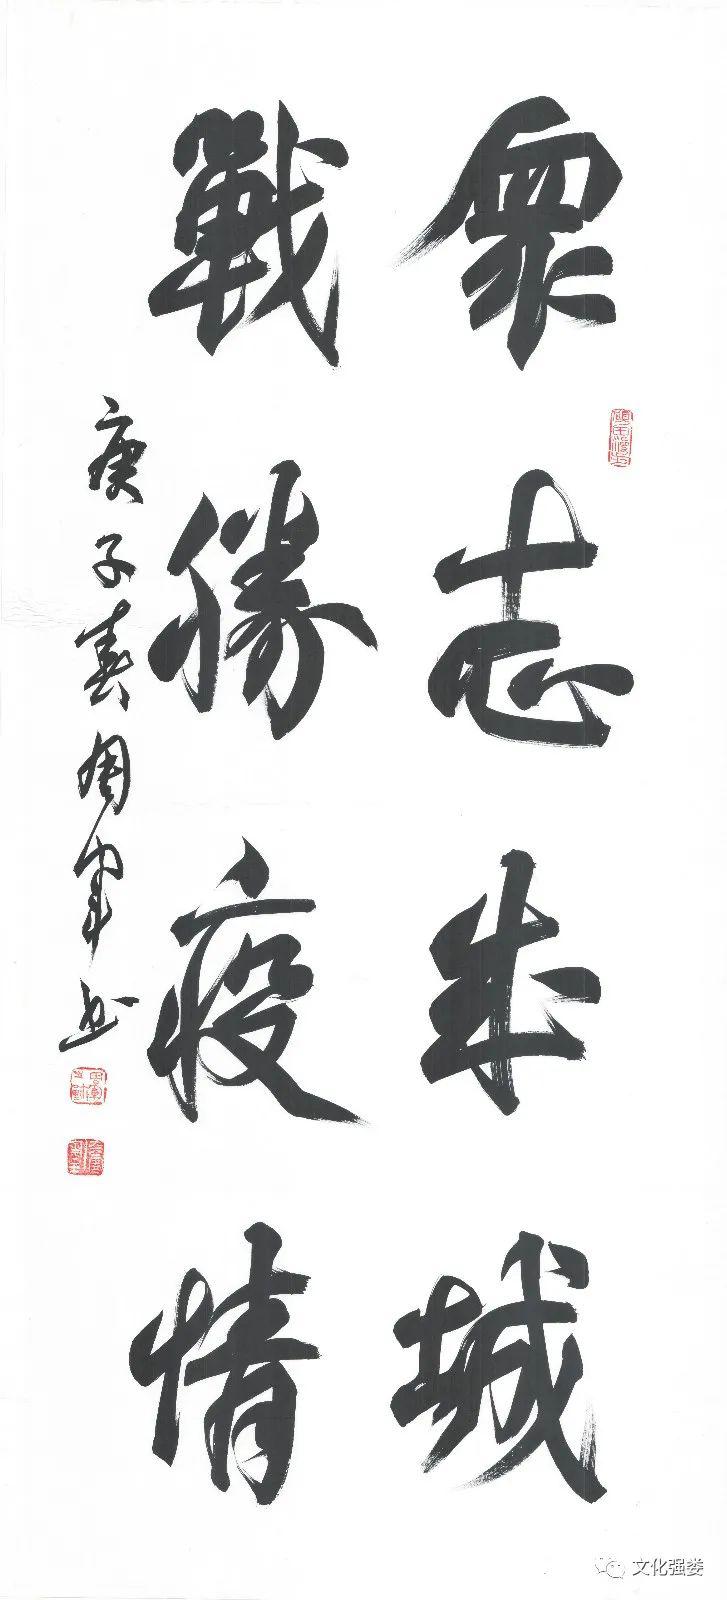 眾志成城
戰勝疫情
庚子春周軍书
文化强娄